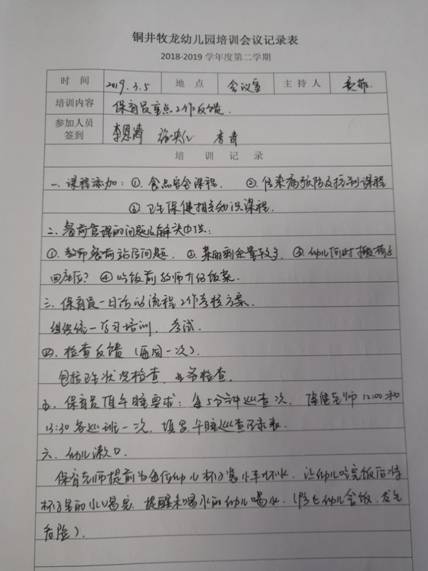 铜井牧龙幼儿园培训会议记录表
2018-2019 学年度第二学期
时 间 2019.3.5 地 点 会议室 主 持 人
培训内容 保育员重点工作反馈.
参加人员
签到
培 训 记 录
一. 课程添加: ①. 食品安全课程. ②. 传染病预防及控制课程
③ 卫生保健相关知识课程.
二. 餐前管理的问题及解决办法:
①. 教师餐前站位问题. ② 菜的剩余量较多. ③ 幼儿何时
回座位? ④ 吃饭前教师介绍饭菜.
三. 保育员一日活动流程工作考核方案.
组织统一学习培训, 考试.
四. 检查反馈 (每周一次).
包括卫生状况检查,
五. 保育员值午睡要求: 每5分钟巡查一次. 保健老师 12:00 和
13:30 各巡班一次, 填写午睡巡查记录表.
六. 幼儿漱口.
保育老师提前为每位幼儿杯子里半杯水, 让幼儿吃完饭后将
杯子里的水喝完, 提醒未喝水的幼儿喝水. (防止幼儿含饭, 发生
危险).